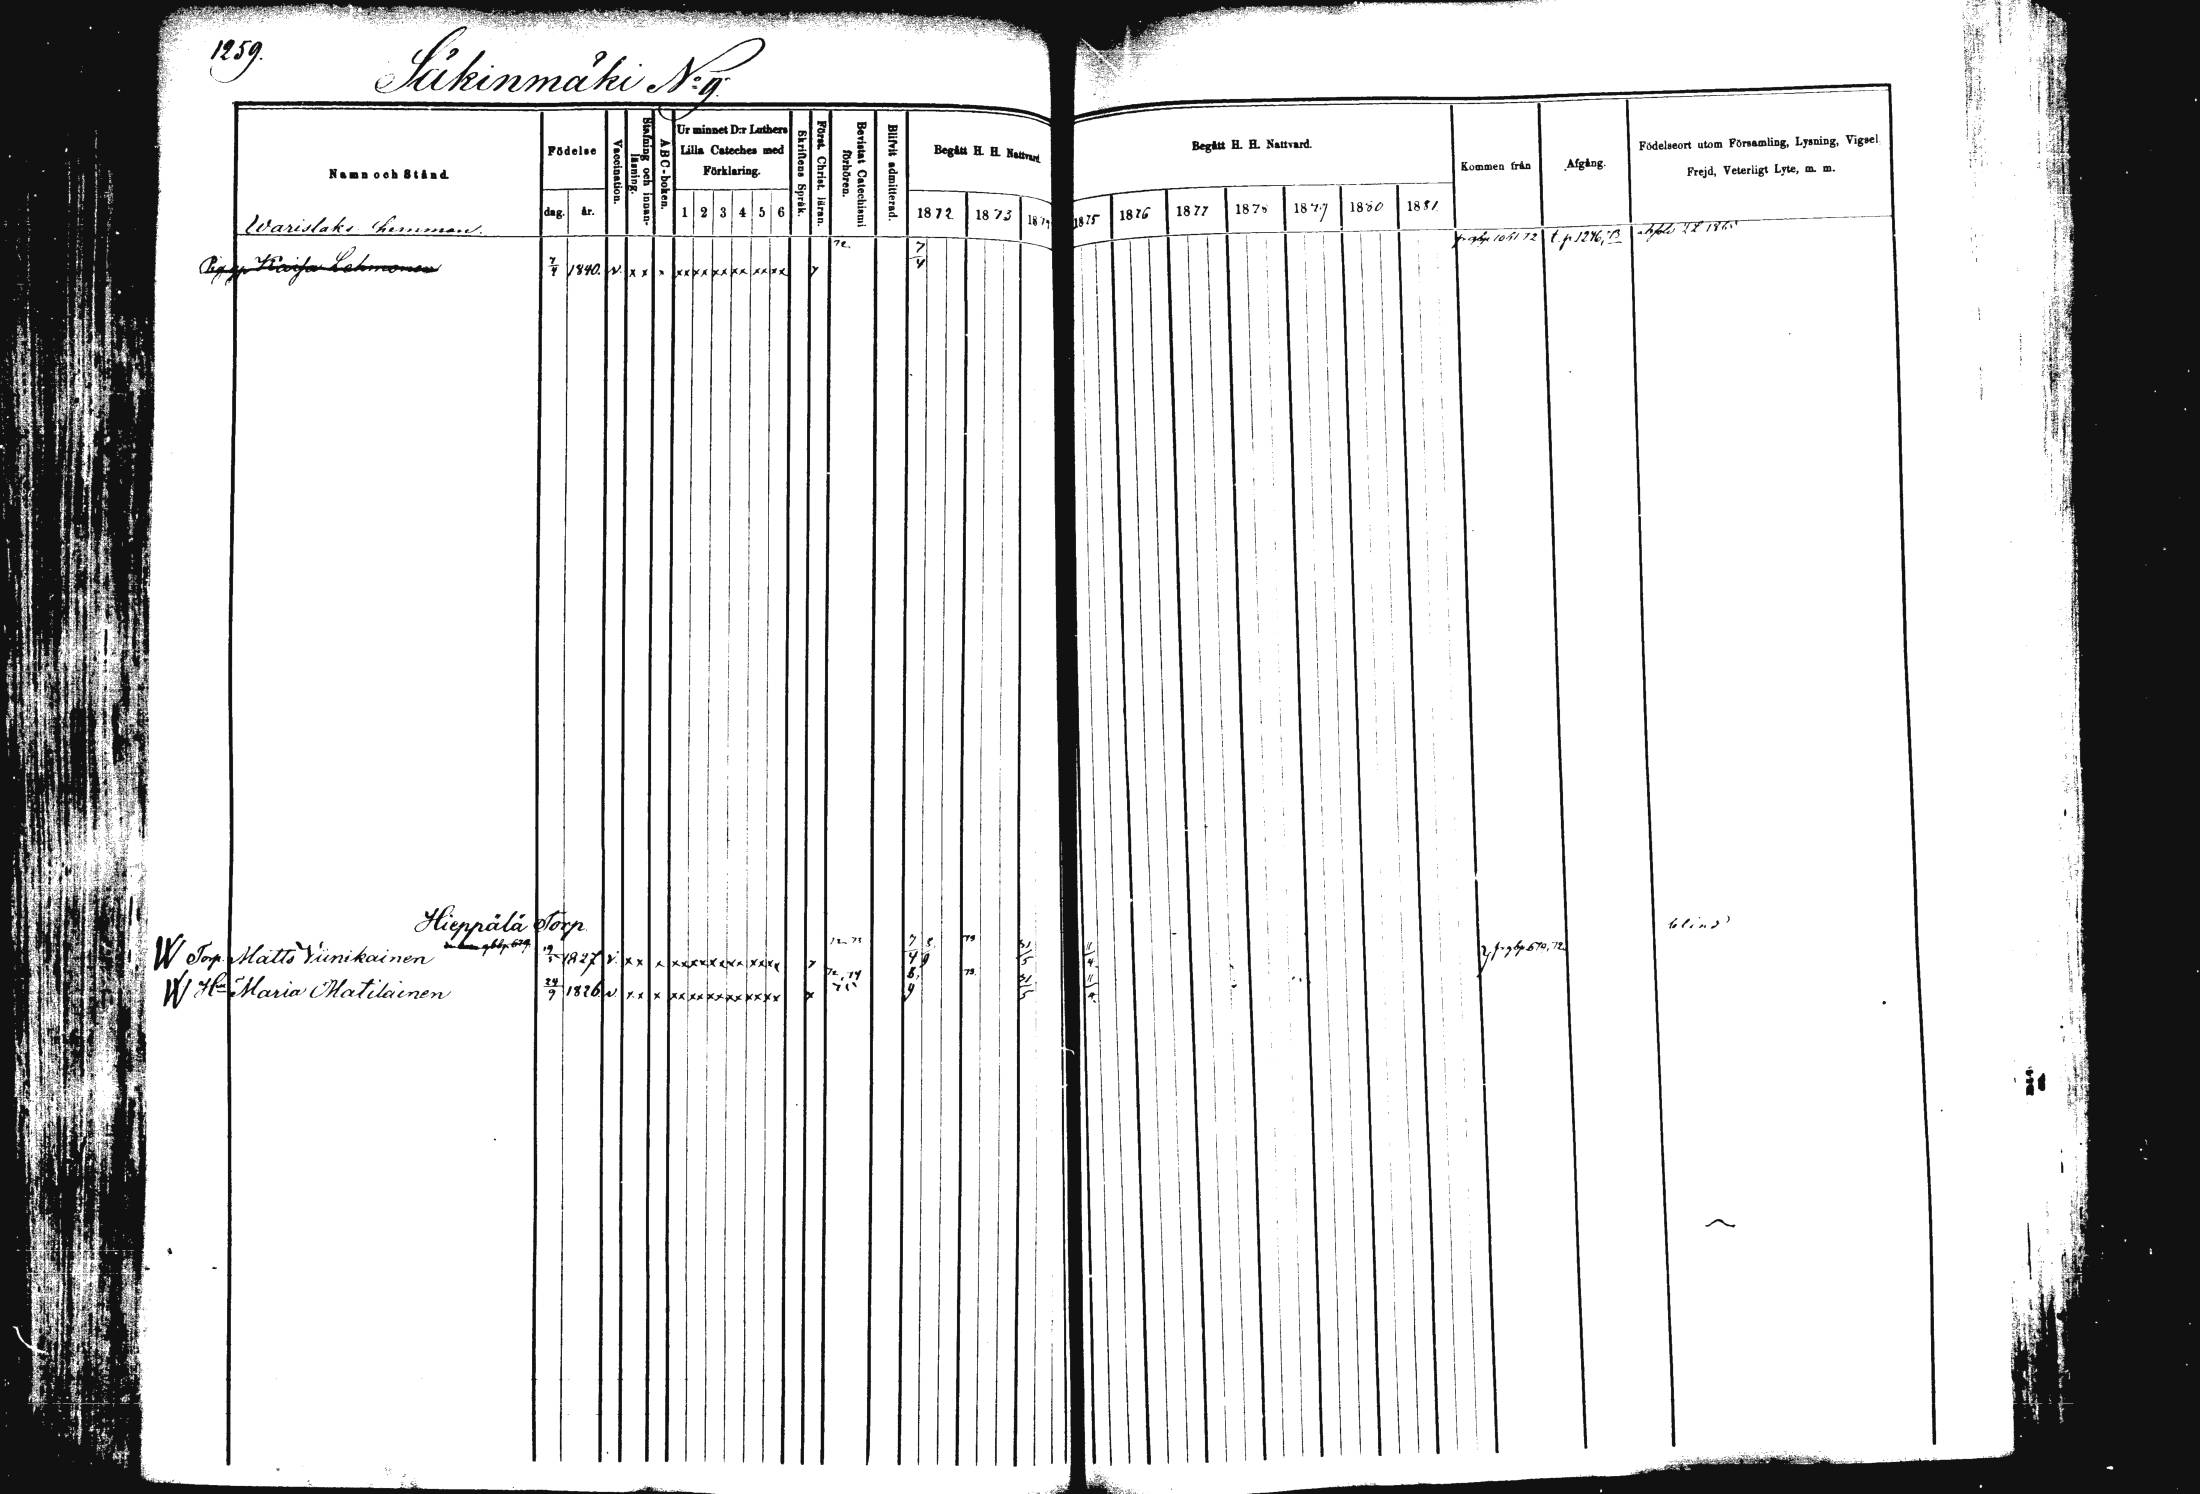 1259.
Säkinmäki No 9.
Namn och Stånd.
Födelse
dag. år.
Vaccination.
Stafning och innanläsning.
ABC-boken.
Ur minnet D:r Luthers Lilla Cateches med Förklaring.
1 2 3 4 5 6
Skriftens Språk.
Först. Christ. läran.
Bevistat Catechismi förhören.
Blifvit admitterad.
Begått H. H. Nattvard.
1872 1873 1874
Begått H. H. Nattvard.
1875 1876 1877 1878 1879 1880 1881
Kommen från
Afgång.
Födelseort utom Församling, Lysning, Vigsel
Frejd, Veterligt Lyte, m. m.
Warislaks hemman.
Kaisa Lehmonen 7/4 1840. v. x x x xx xx xx xx xx xx 72. 7/4
Hieppälä Torp.
blind
W Torp. Matts Viinikainen 1827 v. x x x xx xx xx xx xx xx 72 73 7/4 8/9 73 31/5 11/4 gbp 670, 72
W Hu Maria Matilainen 24/9 1826 v. x x x xx xx xx xx xx xx x 72 74 8/9 73. 31/5 11/4